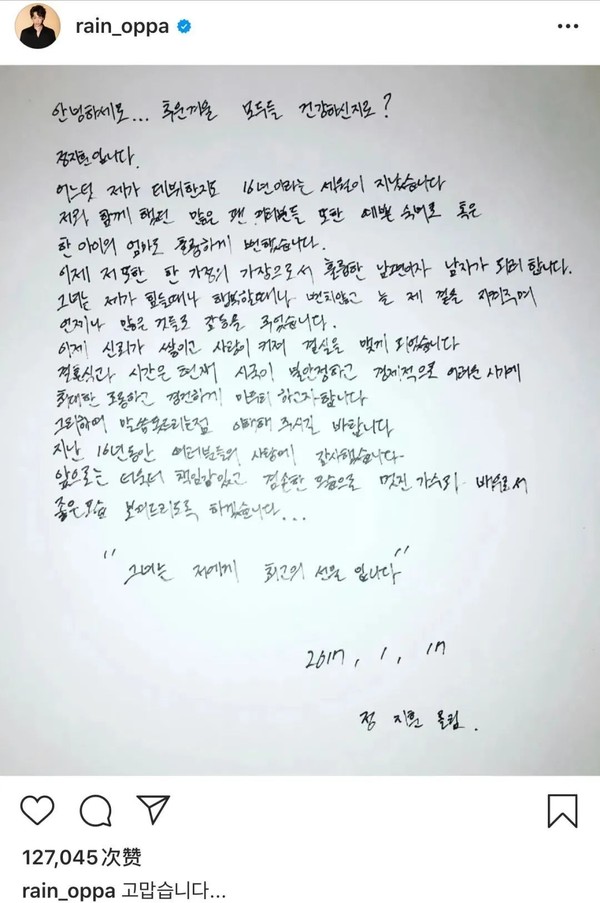 rain_oppa
안녕하세요... 추운겨울 모두들 건강하신지요?
정지훈입니다.
어느덧 제가 데뷔한지도 16년이라는 세월이 지났습니다
저와 함께 했던 많은 팬 여러분들 또한 예쁜 숙녀로 혹은
한 아이의 엄마로 훌륭하게 변했습니다.
이제 저 또한 한 가정의 가장으로서 훌륭한 남편이자 남자가 되려 합니다.
그녀는 제가 힘들때나 행복할때나 변치않고 늘 제 곁을 지켜주며
언제나 많은 것들로 감동을 주었습니다.
이제 신뢰가 쌓이고 사랑이 커져 결실을 맺게 되었습니다
결혼식과 시간은 현재 시국이 불안정하고 경제적으로 어려운 시기에
최대한 조용하고 경건하게 마무리 하고자합니다
그리하여 말씀못드리는점 이해해 주시길 바랍니다
지난 16년동안 여러분들의 사랑에 감사했습니다.
앞으로는 더욱더 책임감있고 겸손한 모습으로 멋진 가수겸 배우로서
좋은모습 보여드리도록 하겠습니다...
"그녀는 저에게 최고의 선물 입니다"
2017, 1, 17
정 지훈 올림.
127,045次赞
rain_oppa 고맙습니다...